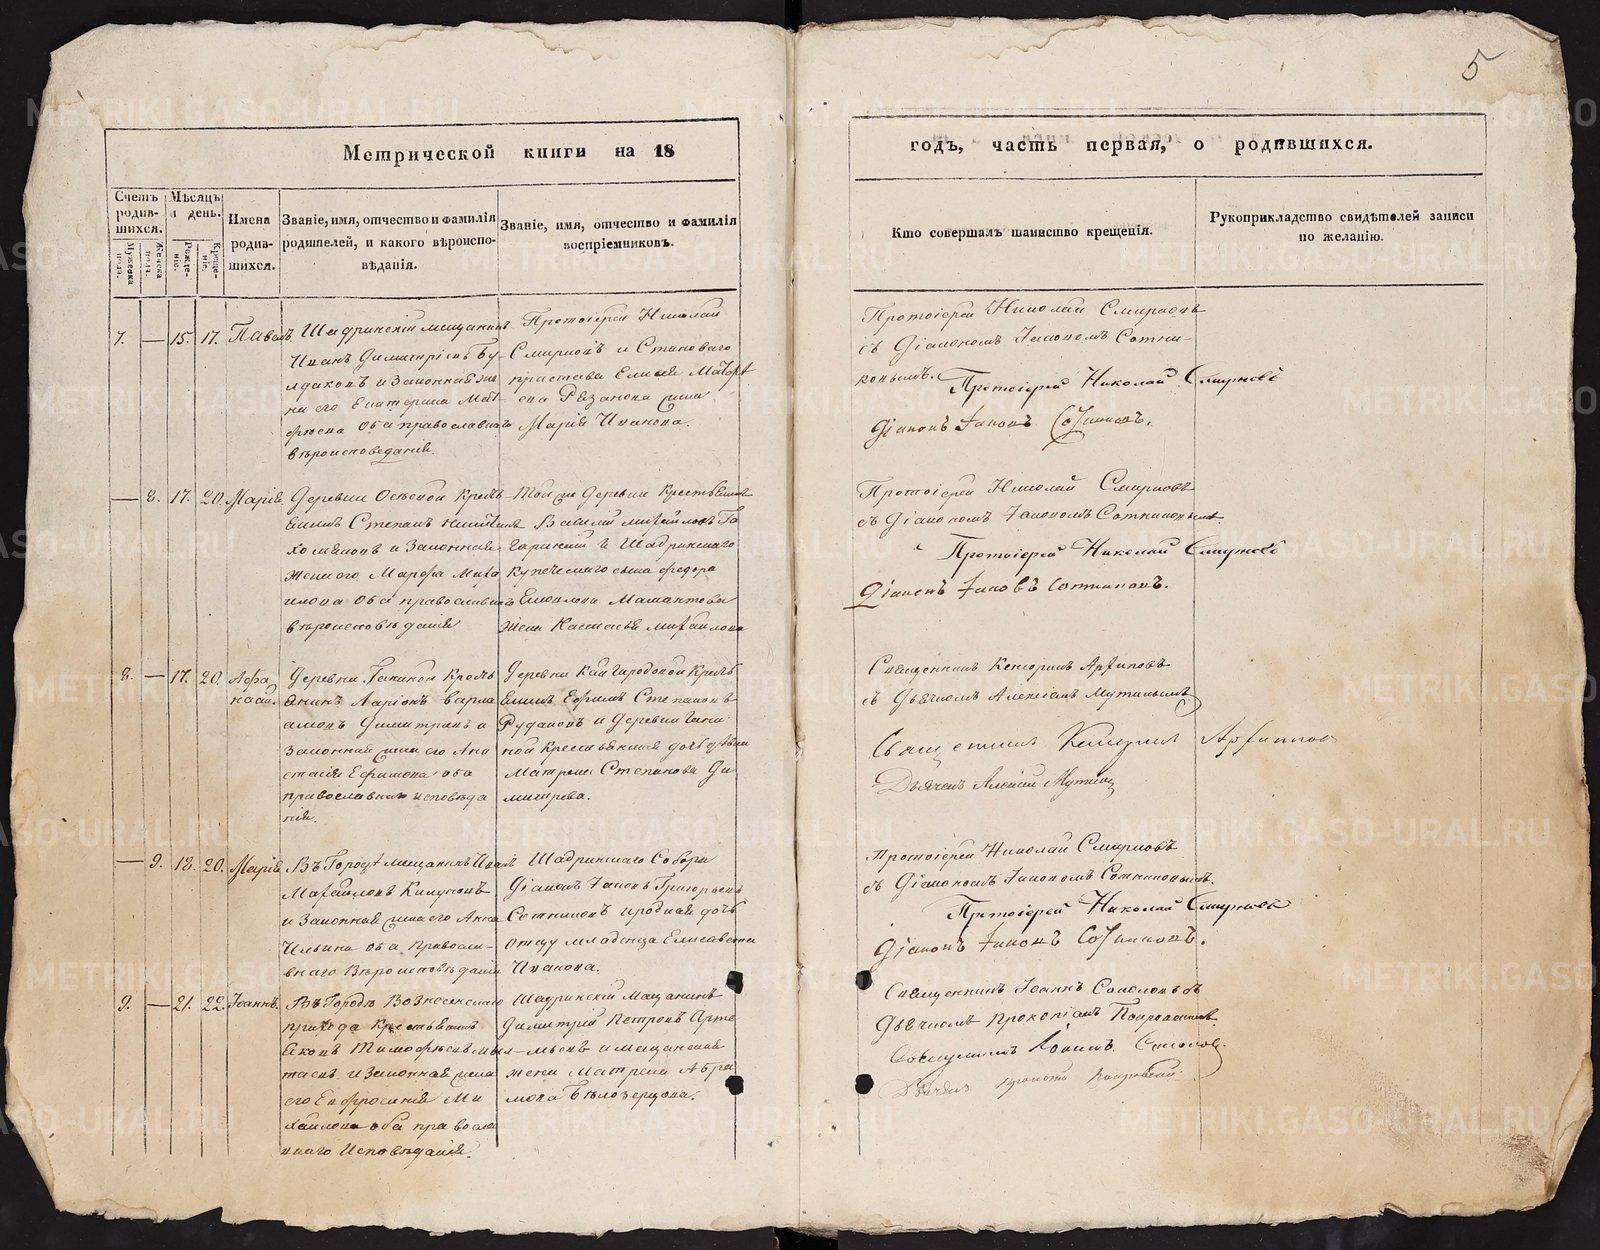 5
Метрической книги на 18
годъ, часть первая, о родившихся.
Счетъ родившихся.
Мужеска пола.
Женска пола.
Мѣсяцъ и день.
Рожденіе.
Крещеніе.
Имена родившихся.
Званіе, имя, отчество и фамилія
родителей, и какого вѣроиспо-
вѣданія.
Званіе, имя, отчество и фамилія
воспріемниковъ.
Кто совершалъ таинство крещенія.
Рукоприкладство свидѣтелей записи
по желанію.
7. — 15. 17. Павелъ
Шадринскій мещанинъ
Иванъ Димитріевъ Бу-
лдаковъ и Законная же
на его Екатерина Мат-
фѣева оба православнаго
вѣроисповеданія.
Протоіерей Николай
Смирновъ и Становаго
пристава Елисея Матфѣ
ева Рязанова жена
Марія Иванова.
Протоіерей Николай Смирновъ
съ Діакономъ Іаковомъ Сотни-
ковымъ.
Протоіерей Николай Смирновъ
Діаконъ Іаковъ Сотниковъ.
— 8. 17. 20. Марія
Деревни Осѣевой Кресть
янинъ Степанъ
и Законная
жена его Марфа Миха
илова оба православнаго
вѣроисповѣданія
Той же деревни Крестьянинъ
Василій Михайловъ
и Шадринскаго
купеческаго сына Федора
Мамонтова
жена Михайлова
Протоіерей Николай Смирновъ
съ Діакономъ Іаковомъ Сотниковымъ.
Протоіерей Николай Смирновъ
Діаконъ Іаковъ Сотниковъ.
8. — 17. 20. Афа
насій.
Деревни Кресть
янинъ Ларіонъ Варла
амовъ и
Законная жена его Ана
стасія Ефимова оба
православнаго исповѣда
нія.
Деревни Кайгородовой Кресть
янинъ Ефимъ Степановъ
Рудаковъ и деревни
Крестьянская дочь дѣвица
Матрена Степанова Ди
митріева.
Священникъ Архиповъ
съ Дьячкомъ Алексіемъ Мутинымъ
Священникъ Архиповъ
Дьячекъ Алексій Мутинъ
— 9. 18. 20. Марія
Въ Городѣ мещанинъ Иванъ
Михайловъ
и Законная жена его Анна
Ильина оба Правосла-
внаго Вѣроисповѣданія
Шадринскаго Собора
Діаконъ Іаковъ Григорьевъ
Сотниковъ и родная дочь
отцу младенца Елисавета
Иванова.
Протоіерей Николай Смирновъ
съ Діакономъ Іаковомъ Сотниковымъ.
Протоіерей Николай Смирновъ
Діаконъ Іаковъ Сотниковъ.
9. — 21. 22. Іоаннъ.
Въ Городѣ Вознесенскаго
прихода Крестьянинъ
Яковъ Тимофѣевъ
и Законная жена
его Евфросинія Ми
хайлова оба правосла
внаго Исповѣданія.
Шадринскій Мещанинъ
Димитрій Петровъ Арте
мьевъ и мещанская
жена Матрена Абра
мова Бѣлозерцова.
Священникъ Іоаннъ Соколовъ съ
Дьячкомъ Прокопіемъ Покровскимъ.
Священникъ Іоаннъ Соколовъ.
Дьячекъ Прокопій Покровскій.
METRIKI.GASO-URAL.RU